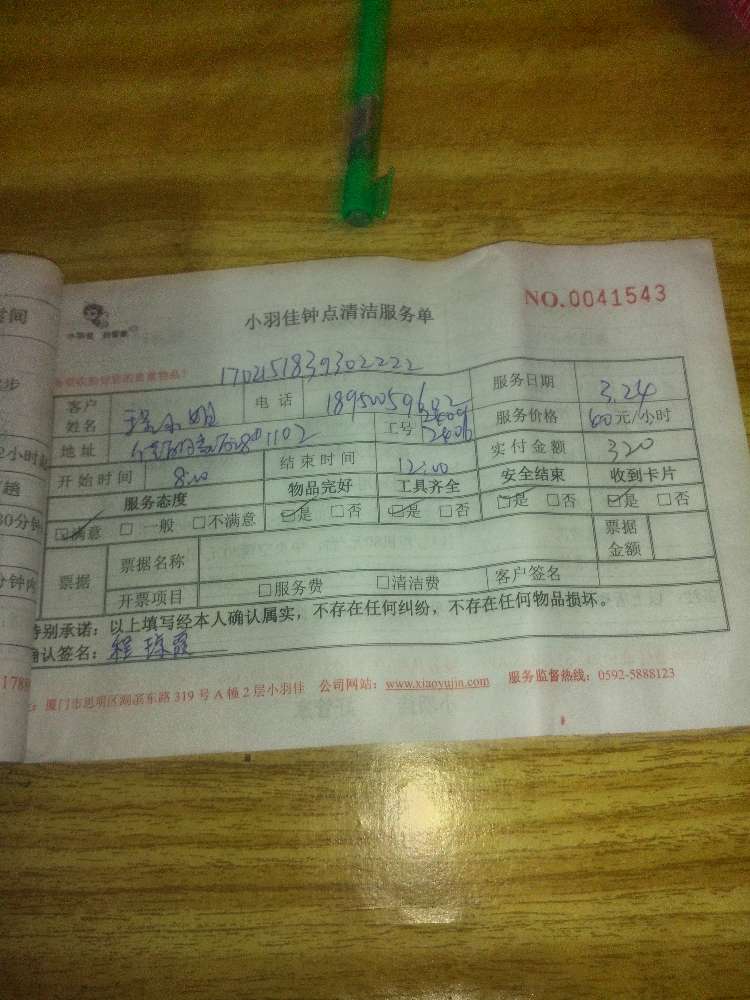 间
步
2小时起
趟
30分钟
分钟内
小羽佳 好管家
小羽佳钟点清洁服务单
NO.0041543
1702151839302222
客户姓名 电话 18950059602 服务日期 3.24
地址 1102 工号 2409 2406 服务价格 60元/小时
开始时间 8:00 结束时间 12:00 实付金额 320
服务态度 物品完好 工具齐全 安全结束 收到卡片
☑满意 □一般 □不满意 ☑是 □否 ☑是 □否 ☑是 □否 ☑是 □否
票据 票据名称 票据金额
开票项目 □服务费 □清洁费 客户签名
特别承诺：以上填写经本人确认属实，不存在任何纠纷，不存在任何物品损坏。
确认签名：程
厦门市思明区湖滨东路319号A幢2层小羽佳 公司网站：www.xiaoyujin.com 服务监督热线：0592-5888123